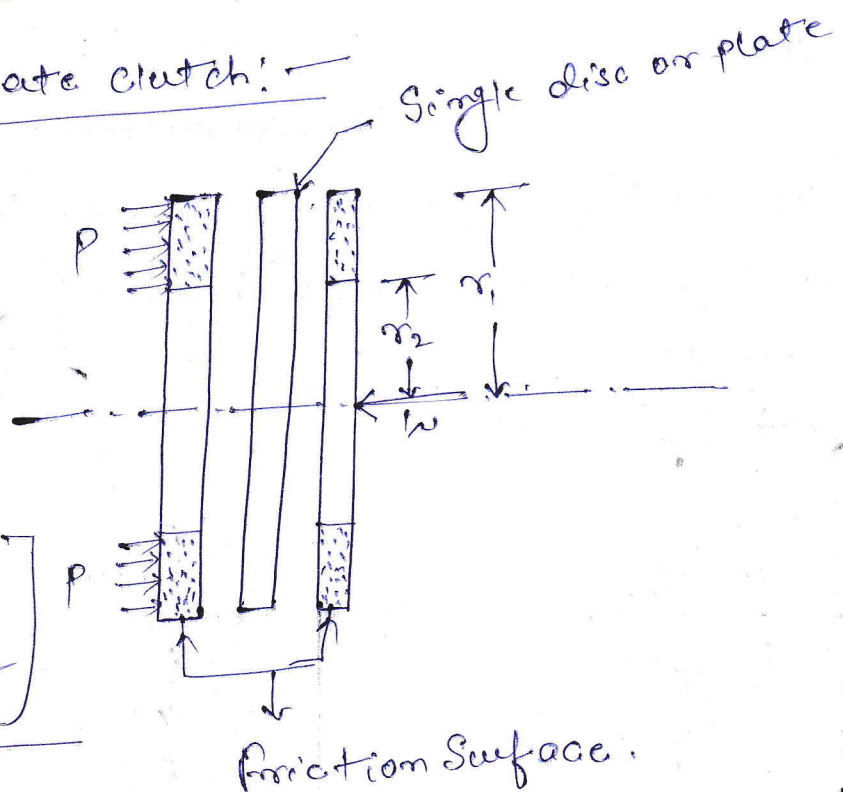 ate clutch:-
Single disc or plate
P
r₁
r₂
W
P
friction Surface.